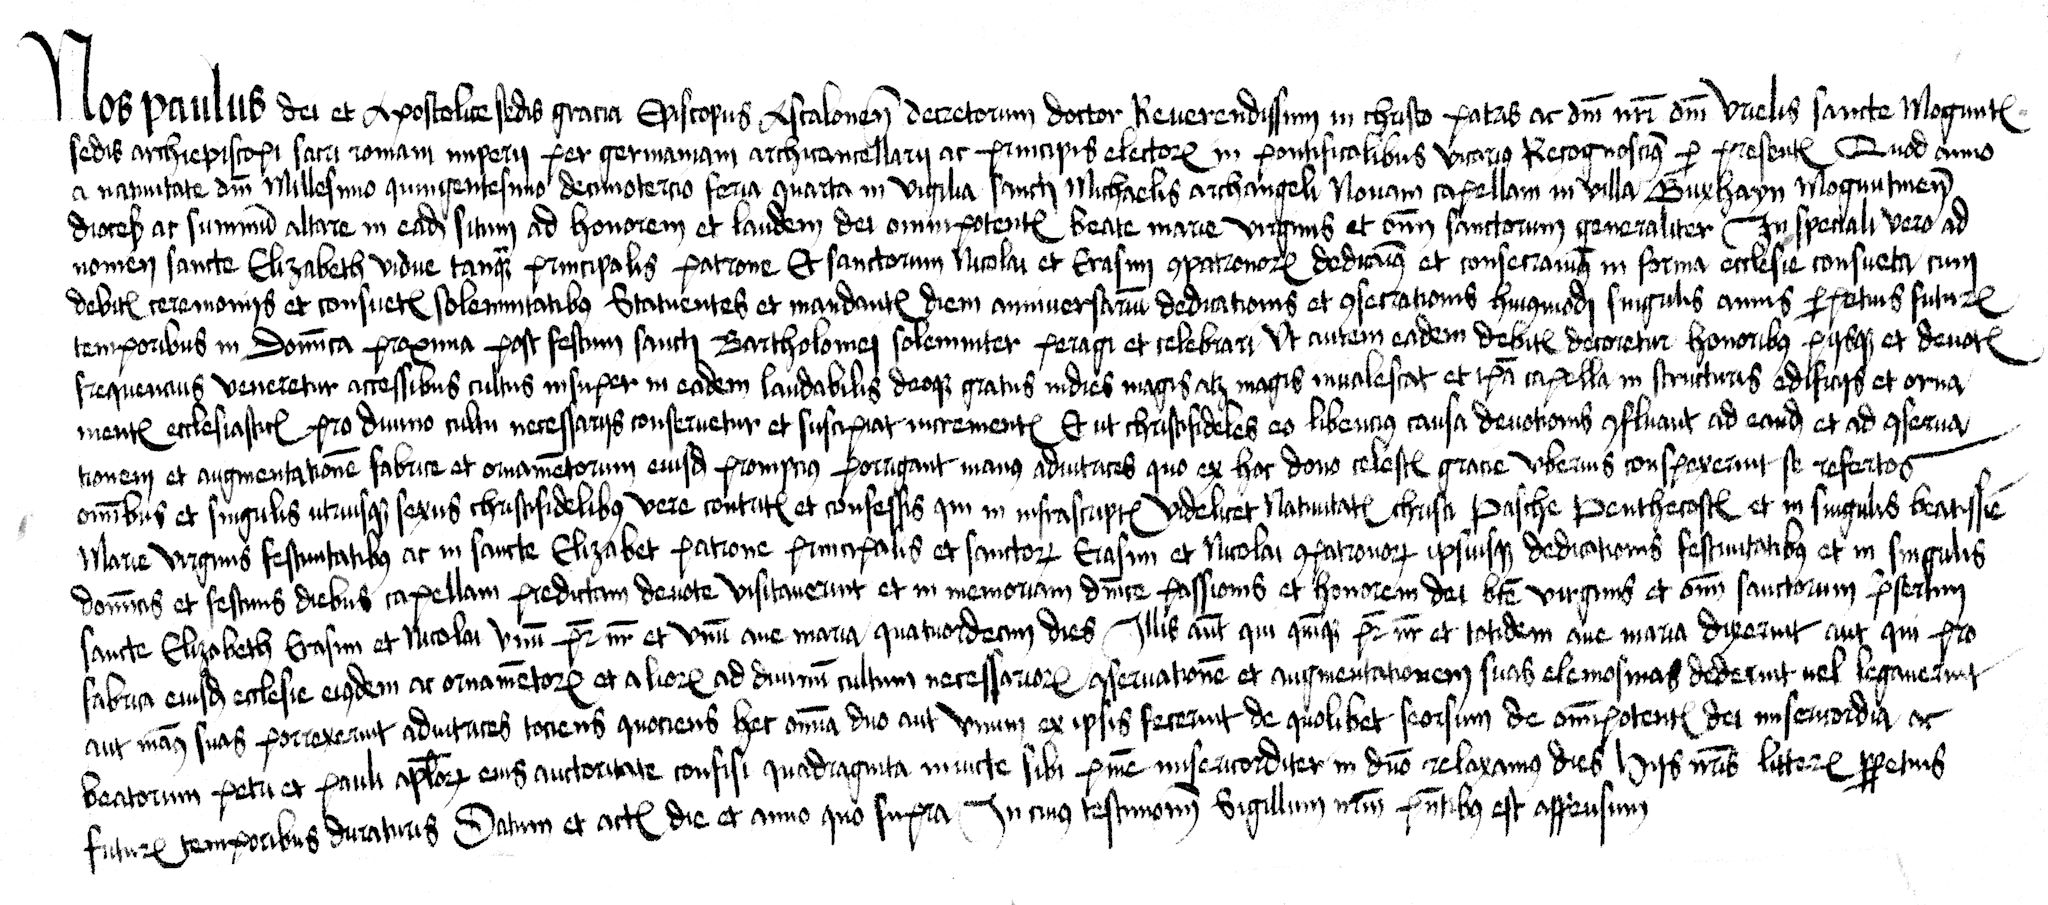 Nos paulus dei et Apostolice sedis gracia Episcopus Ascalonen̄ decretorum doctor Reverendissimi in christo patris ac dn̄i nr̄i dn̄i Urielis sancte Mogunt
sedis archiepiscopi sacri romani imperii per germaniam archicancellarii ac principis elector in pontificalibus vicariꝰ Recognoscimꝰ ꝑ present Quod anno
a nativitate dn̄i Millesimo quingentesimo decimotercio feria quarta in vigilia sancti Michaelis archangeli Novam capellam in villa Buxhayn Moguntinen̄
dioces ac summū altare in ead situm ad honorem et laudem dei omnipotent beate marie virginis et om̄i sanctorum generaliter In speciali vero ad
nomen sancte Elizabeth vidue tanqꝫ principalis patrone Et sanctorum Nicolai et Erasmi ꝯpatronoꝝ dedicavimꝰ et consecravimꝰ in forma ecclesie consueta cum
debit ceremoniis et consuet solemnitatibꝰ Statuentes et mandant diem anniversariū dedicationis et ꝯsecrationis huiꝰmodi singulis annis ꝑpetuis futuꝝ
temporibus in Domīca proxima post festum sancti Bartholomei solemniter peragi et celebrari Ut autem eadem debit decoretur honoribꝰ piisqꝫ et devot
frequencius veneretur accessibus cultus insuper in eadem laudabilis deoqꝫ gratus indies magis atqꝫ magis invalescat et ip̄a capella in structuris edificiis et orna
ment ecclesiastic pro divino cultu necessariis conservetur et suscipiat increment Et ut christifideles eo libenciꝰ causa devotionis ꝯfluant ad eand et ad ꝯserva
tionem et augmentationē fabrice et ornamētorum eiusd prompciꝰ porrigant manꝰ adiutrices quo ex hoc dono celest gracie uberius conspexerint se refertos
om̄ibus et singulis utriusqꝫ sexus christifidelibꝰ vere contrit et confessis qui in infrascript videlicet Nativitat christi Pasche Penthecost et in singulis beatissīe
Marie virginis festivitatibꝰ ac in sancte Elizabet patrone principalis et sanctoꝝ Erasmi et Nicolai ꝯpatronoꝝ ipsiusqꝫ dedicationis festivitatibꝰ et in singulis
domīcis et festivis diebus capellam predictam devote visitaverint et in memoriam dn̄ice passionis et honorem dei btē virginis et om̄i sanctorum p̄sertim
sancte Elizabeth Erasmi et Nicolai unū pr̄ nr̄ et unū ave maria quatuordecim dies Illis aūt qui quīqꝫ pr̄ nr̄ et totidem ave maria dixerint aut qui pro
fabrica eiusd ecclesie eiꝰdem ac ornamētoꝝ et alioꝝ ad divinū cultum necessarioꝝ ꝯservationē et augmentationem suas elemosinas dederint vel legaverint
aut manꝰ suas porrexerint adiutrices tociens quociens hec om̄ia duo aut unum ex ipsis fecerint de quolibet seorsum de om̄ipotent dei misericordia ac
beatorum petri et pauli ap̄loꝝ eius auctoritate confisi quadraginta iniuncte sibi pn̄ie misericorditer in dn̄o relaxamꝰ dies Hiis nr̄is litteꝝ ꝑpetuis
futuꝝ temporibus duraturis Datum et act die et anno quo supra In cuiꝰ testimoniū Sigillum nr̄m pn̄tibꝰ est appensum